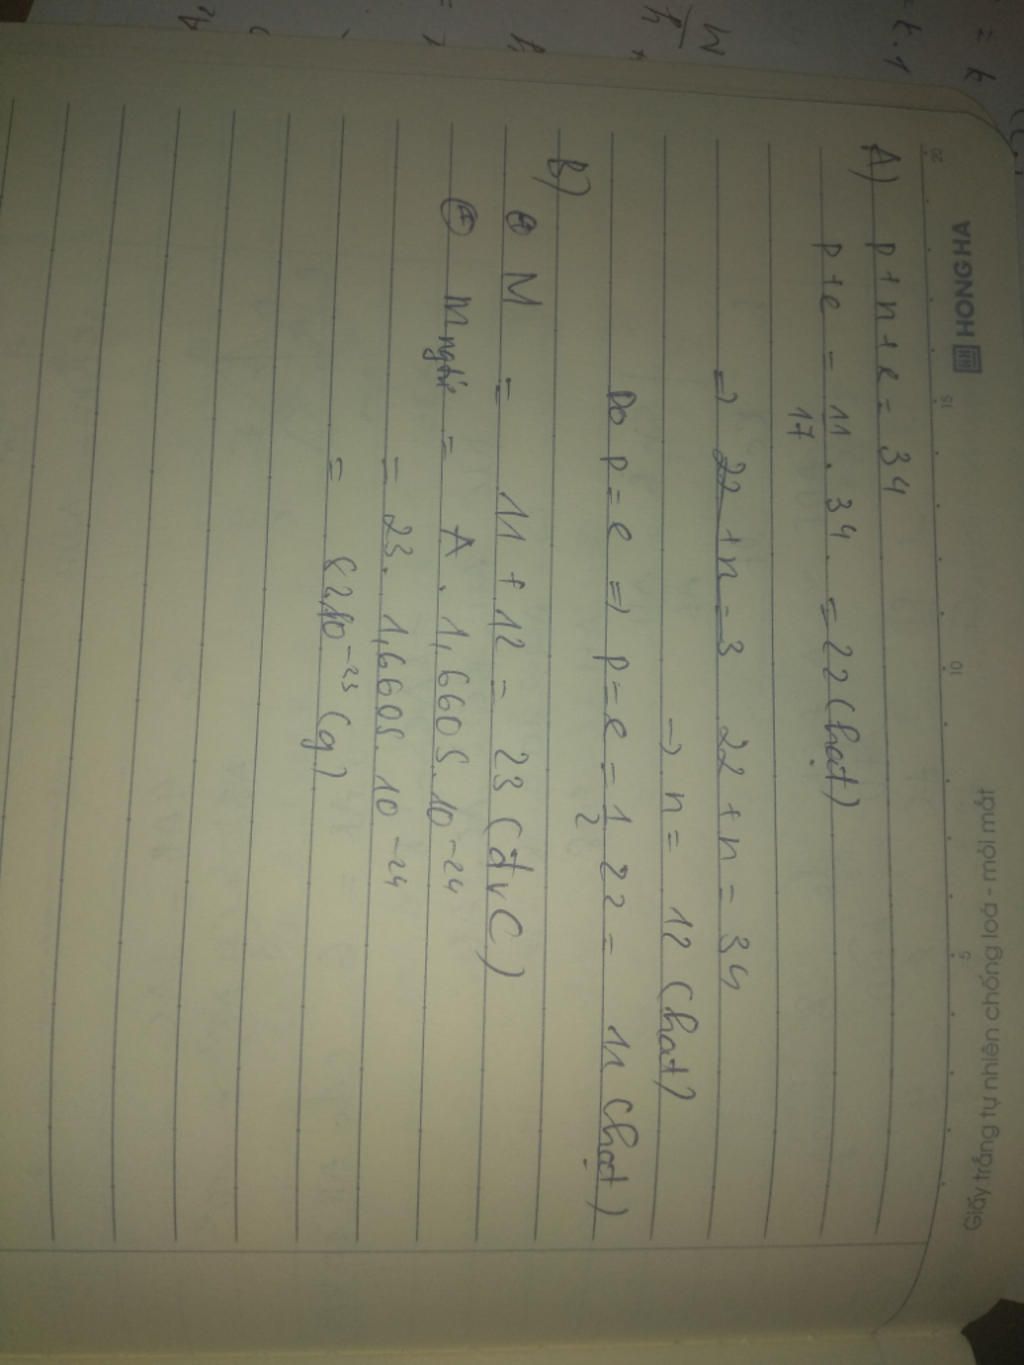 HONG HA
Giấy trắng tự nhiên chống loá - mỏi mắt
20 15 10 5
A) p + n + e = 34
p + e = 11/17 . 34 . = 22 (hạt)
=> 22 + n = 3 22 + n = 34
-> n = 12 (hạt)
Do p = e => p = e = 1/2 22 = 11 (hạt)
B)
⊕ M = 11 + 12 = 23 (đvC)
⊕ m = A . 1,6605 . 10⁻²⁴
= 23 . 1,6605 . 10⁻²⁴
= 10⁻²³ (g)